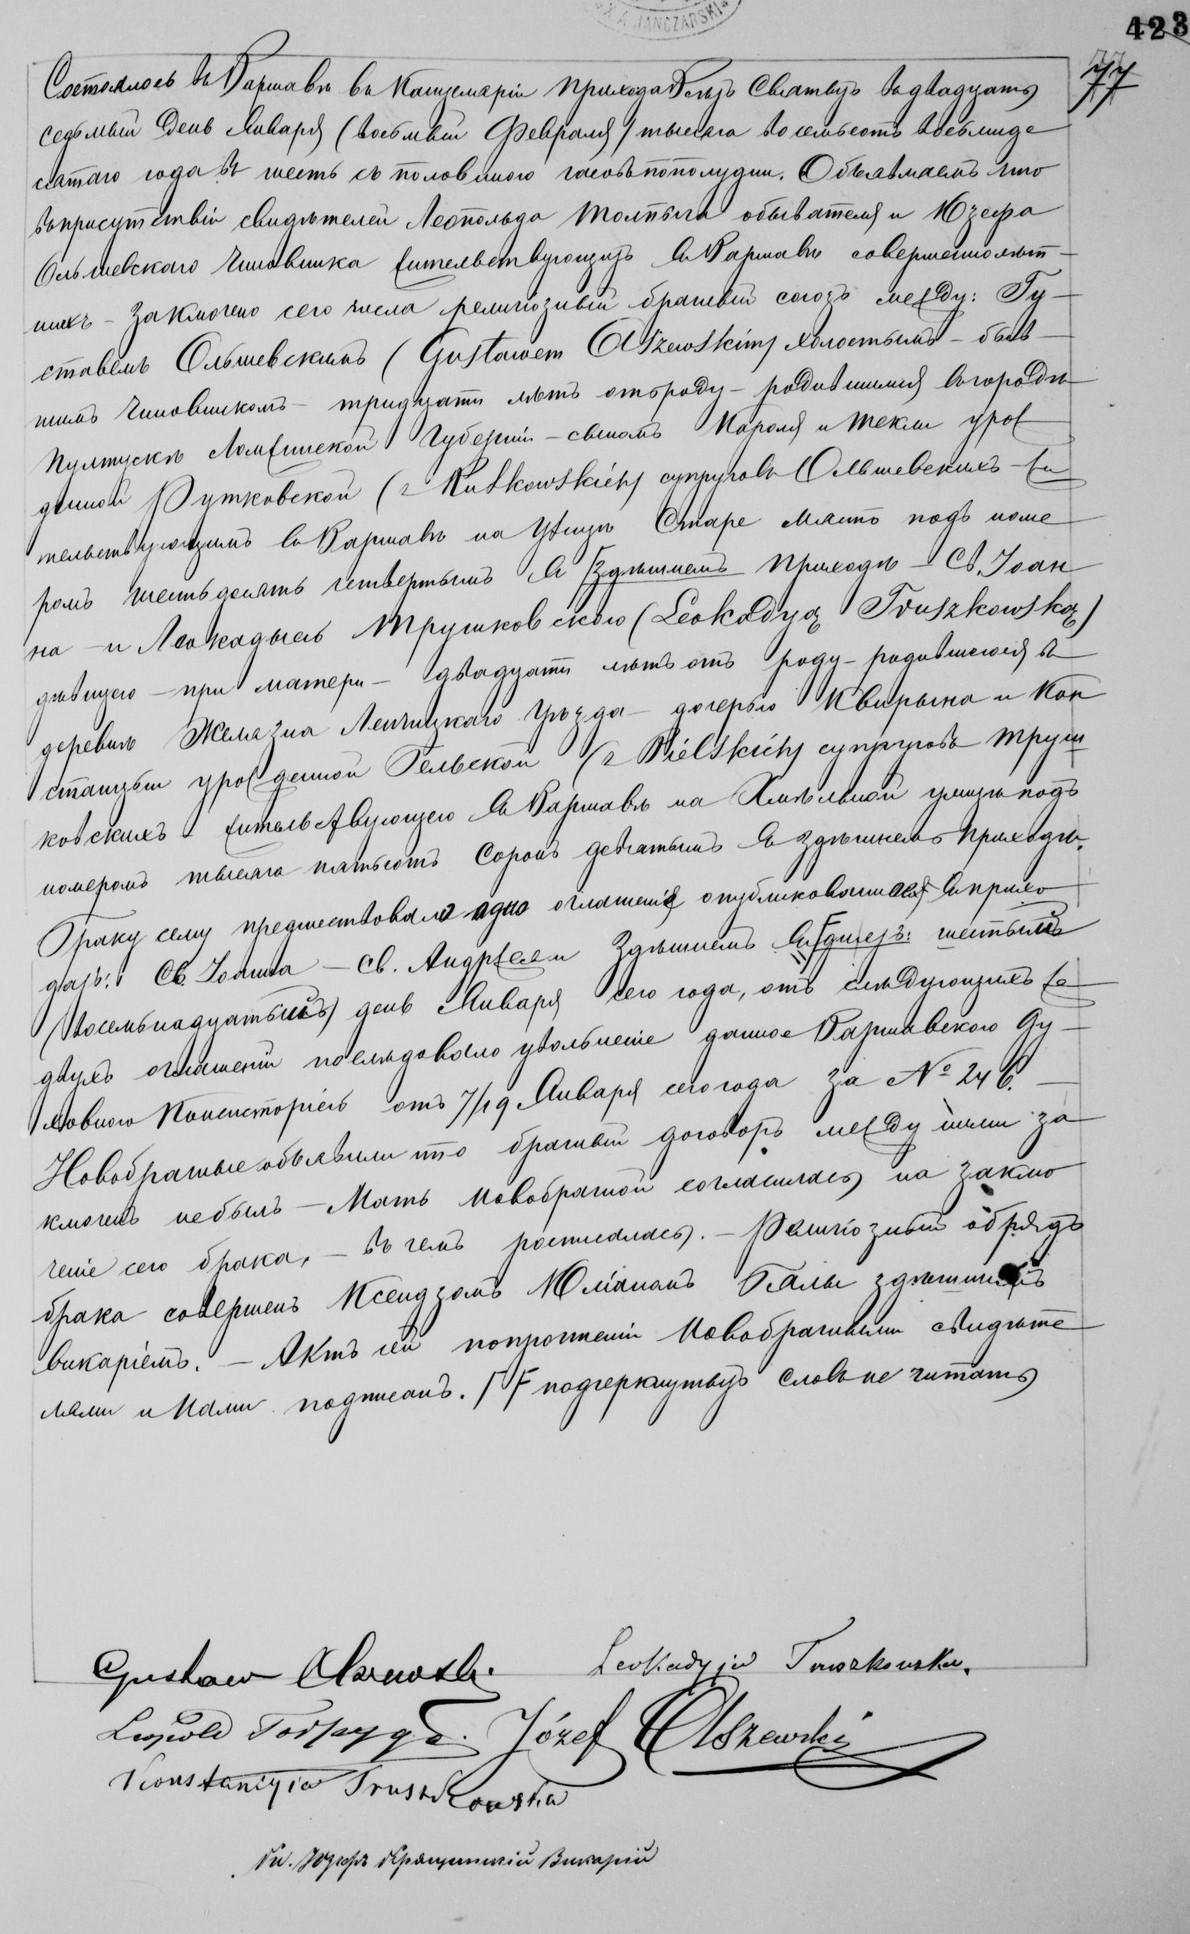 X. A. JANCZARSKI
423
77
Состоялось въ Варшавѣ въ Канцеляріи Прихода Всѣхъ Святыхъ двадцать
седьмый день Января (восьмый Февраля) тысяча восемьсотъ восьмиде
сятаго года въ шесть съ половиною часовъ пополудни. Объявляемъ что
въ присутствіи свидѣтелей Леопольда обывателя и Юзефа
Ольшевскаго чиновника жительствующихъ въ Варшавѣ совершеннолѣт–
нихъ – заключено сего числа религіозный брачный союзъ между: Гу–
ставомъ Ольшевскимъ (Gustawem Olszewskim) холостымъ – быв–
шимъ чиновникомъ – тридцати лѣтъ отъ роду – родившимся въ городѣ
Пултускѣ Ломжинской Губерніи – сыномъ Кароля и Текли урож
денной Рутковской (z Rutkowskich) супруговъ Ольшевскихъ – жи
тельствующимъ въ Варшавѣ на улицѣ Старе Място подъ номе
ромъ шестьдесятъ четвертымъ въ здѣшнемъ Приходѣ – Св. Іоан
на – и Леокадыею Трушковскою (Leokadyą Truszkowską)
дѣвицею – при матери – двадцати лѣтъ отъ роду – родившеюся въ
деревнѣ Желязна Ленчицкаго Уѣзда – дочерью Квирына и Кон
станціи урожденной Бельской (z Bielskich) супруговъ Труш
ковскихъ – жительствующею въ Варшавѣ на Хмѣльной улицѣ подъ
номеромъ тысяча пятьсотъ сорокъ девятымъ въ здѣшнемъ Приходѣ.
Браку сему предшествовало одно оглашеніе опубликованное въ прихо
дахъ: Св. Іоанна – Св. Андрея и здѣшнемъ шестый
(восемьнадцатый) день Января сего года, отъ слѣдующихъ же
двухъ оглашеній послѣдовало увольненіе данное Варшавскою Ду–
ховною Консисторіею отъ 7/19 Января сего года за № 246. –
Новобрачные объявили что брачный договоръ между ними за
ключенъ небылъ – Мать новобрачной согласилась на заклю
ченіе сего брака, – въ чемъ росписалась. – Религіозный обрядъ
брака совершенъ Ксендзомъ Юліаномъ здѣшнимъ
викаріемъ. – Актъ сей по прочтеніи Новобрачными свидѣте
лями и Нами подписанъ. подчеркнутыхъ словъ не читать
Gustaw Olszewski. Leokadyja Truszkowska.
Leopold Józef Olszewski
Konstancyja Truszkowska
Кс. Юзефъ Викарій